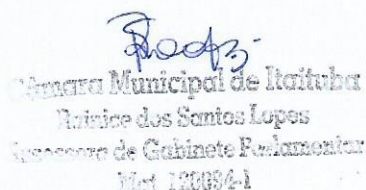 Câmara Municipal de Itaituba
dos Santos Lopes
Assessora de Gabinete Parlamentar
Mat. 120894-1